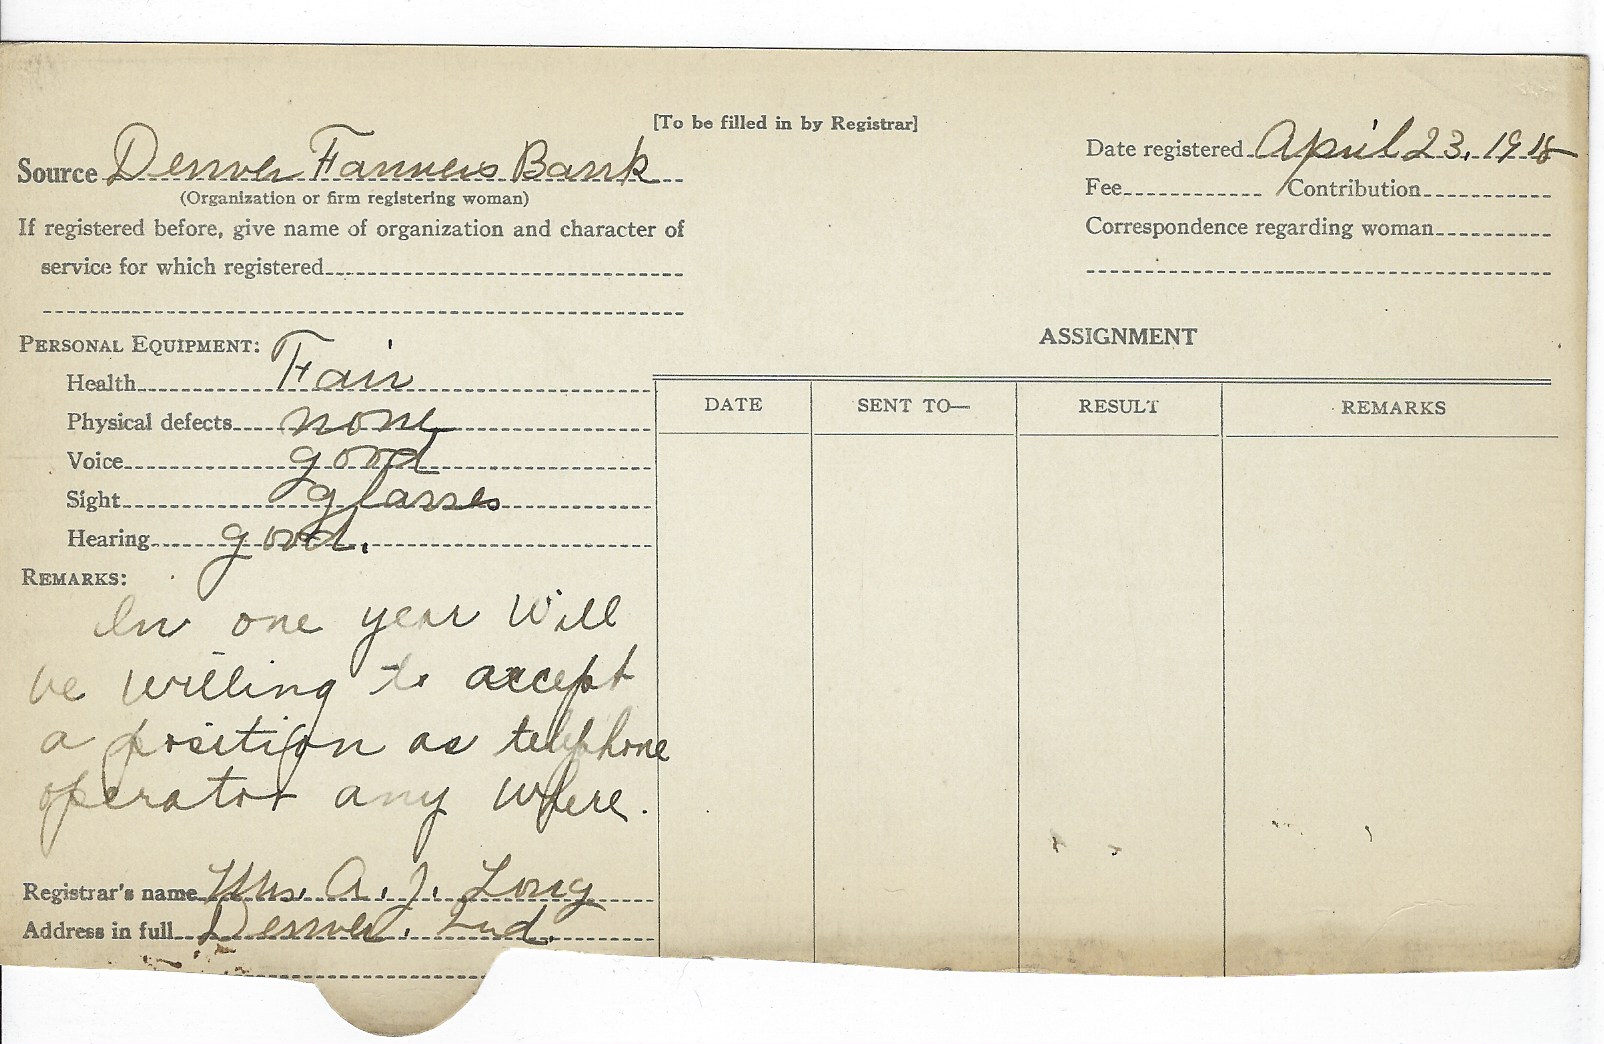 [To be filled in by Registrar]
Source Denver Farmers Bank
(Organization or firm registering woman)
If registered before, give name of organization and character of
service for which registered
PERSONAL EQUIPMENT:
Health Fair
Physical defects none
Voice good
Sight glasses
Hearing good.
REMARKS:
In one year will
be willing to accept
a position as telephone
operator any where.
Registrar's name Mrs. A. J. Long
Address in full Denver, Ind.
Date registered April 23, 1918
Fee Contribution
Correspondence regarding woman
ASSIGNMENT
DATE SENT TO— RESULT REMARKS